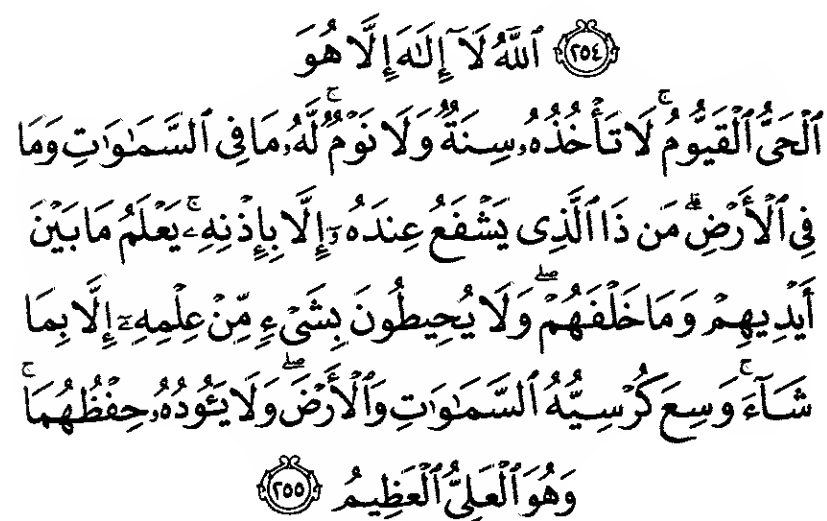 ٢٥٤ ٱللَّهُ لَآ إِلَٰهَ إِلَّا هُوَ
ٱلْحَىُّ ٱلْقَيُّومُ ۚ لَا تَأْخُذُهُۥ سِنَةٌ وَلَا نَوْمٌ ۚ لَّهُۥ مَا فِى ٱلسَّمَٰوَٰتِ وَمَا
فِى ٱلْأَرْضِ ۗ مَن ذَا ٱلَّذِى يَشْفَعُ عِندَهُۥٓ إِلَّا بِإِذْنِهِۦ ۚ يَعْلَمُ مَا بَيْنَ
أَيْدِيهِمْ وَمَا خَلْفَهُمْ ۖ وَلَا يُحِيطُونَ بِشَىْءٍ مِّنْ عِلْمِهِۦٓ إِلَّا بِمَا
شَآءَ ۚ وَسِعَ كُرْسِيُّهُ ٱلسَّمَٰوَٰتِ وَٱلْأَرْضَ ۖ وَلَا يَـُٔودُهُۥ حِفْظُهُمَا ۚ
وَهُوَ ٱلْعَلِىُّ ٱلْعَظِيمُ ٢٥٥